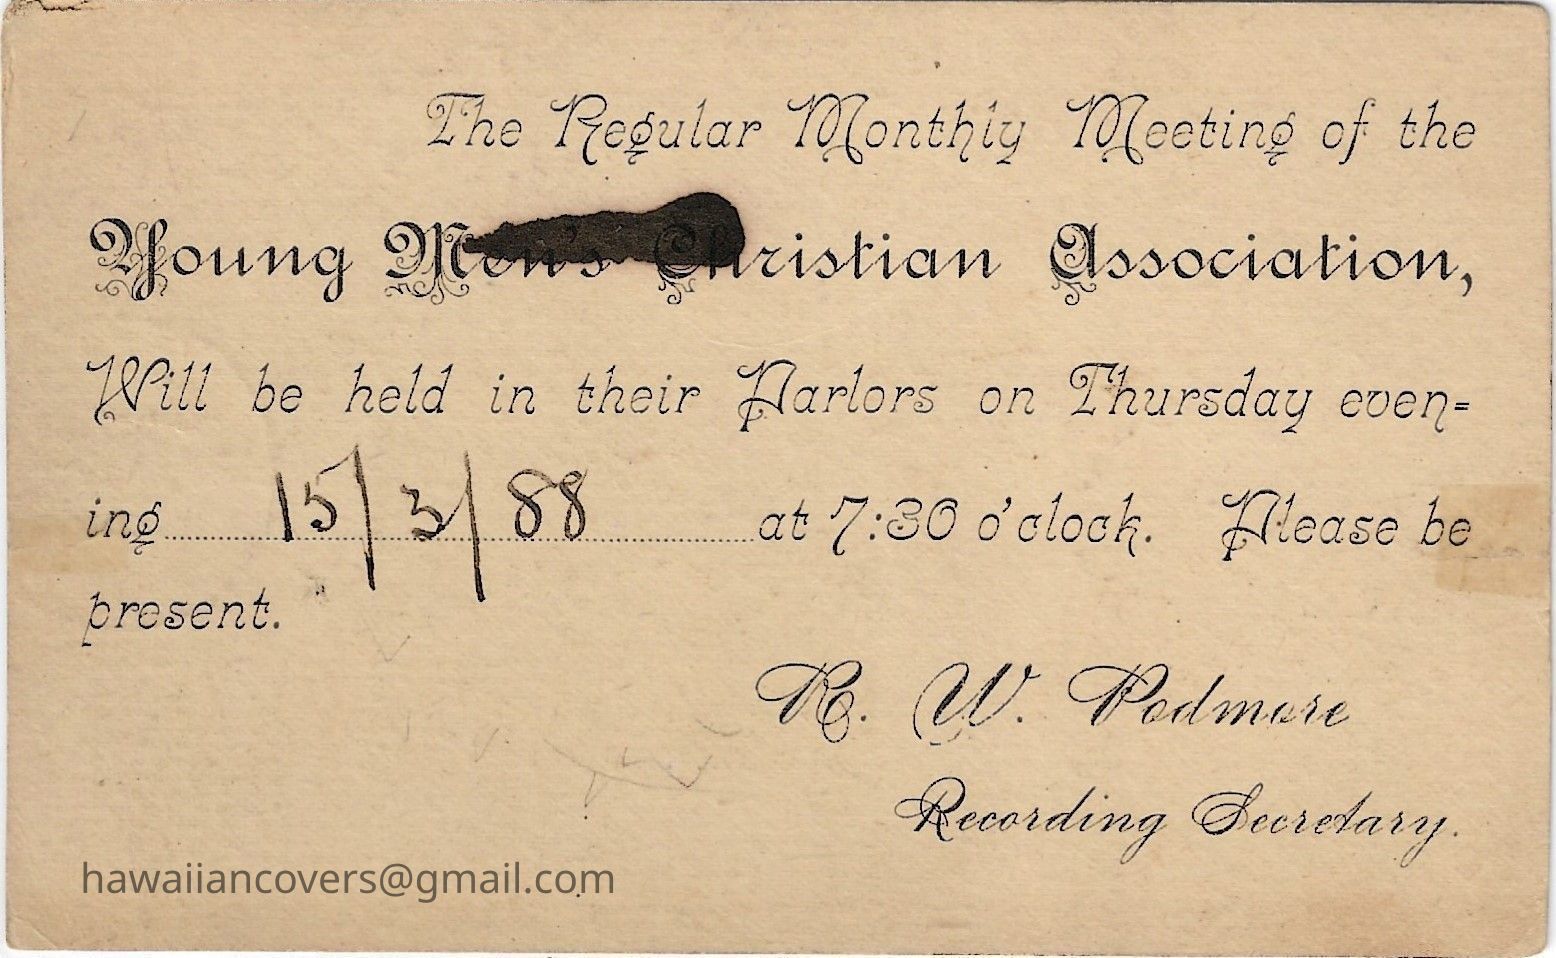 The Regular Monthly Meeting of the
Young Men's Christian Association,
Will be held in their Parlors on Thursday even=
ing 15/3/88 at 7:30 o'clock. Please be
present.
R. W. Podmore
Recording Secretary.
hawaiiancovers@gmail.com